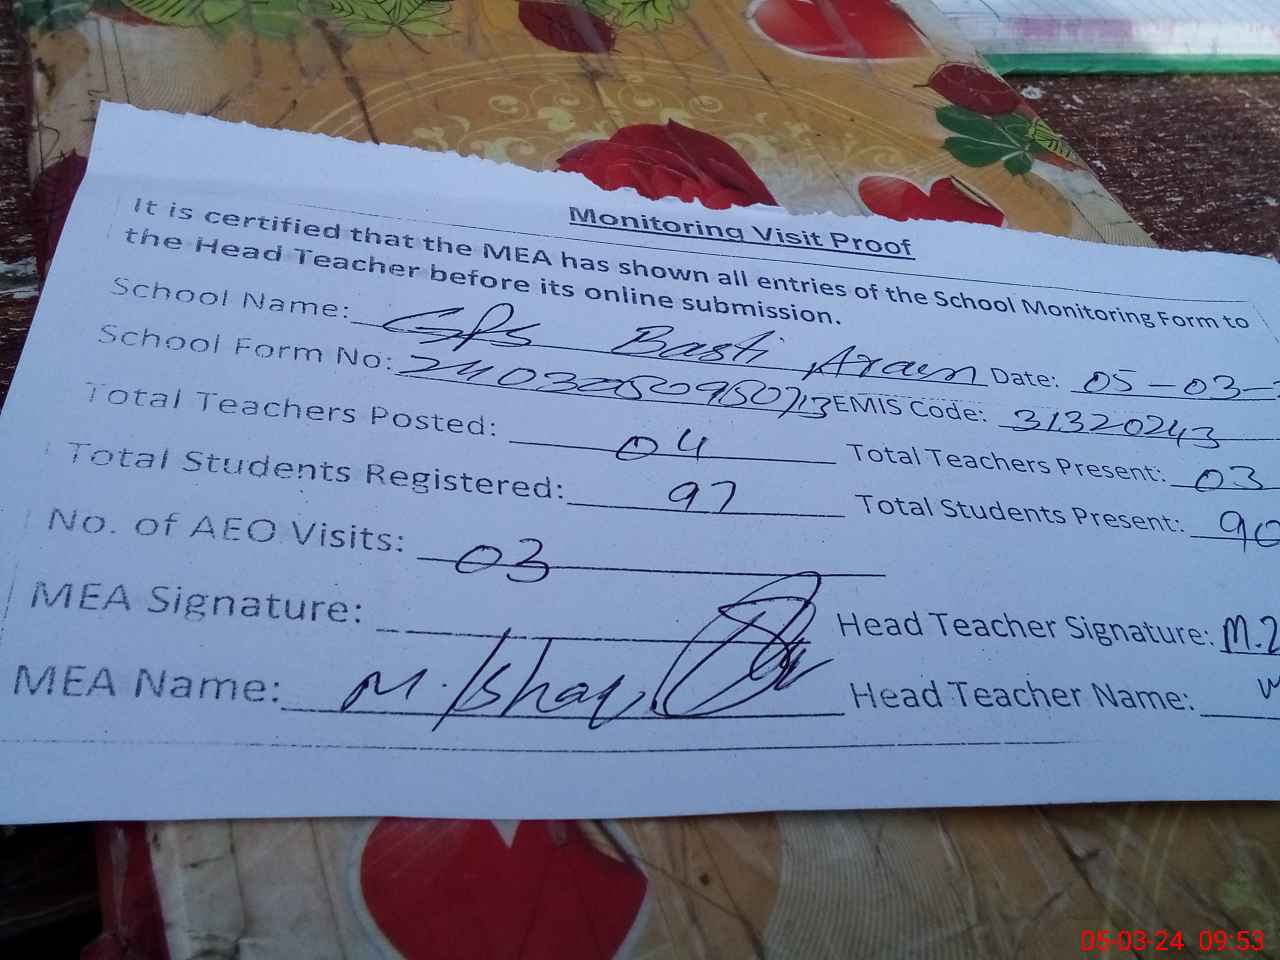 Monitoring Visit Proof
It is certified that the MEA has shown all entries of the School Monitoring Form to
the Head Teacher before its online submission.
School Name: GPS Basti Araen Date: 05-03-
School Form No: EMIS Code: 31320243
Total Teachers Posted: 04 Total Teachers Present: 03
Total Students Registered: 97 Total Students Present: 90
No. of AEO Visits: 03
MEA Signature: Head Teacher Signature: M.
MEA Name: M. Head Teacher Name:
05-03-24 09:53